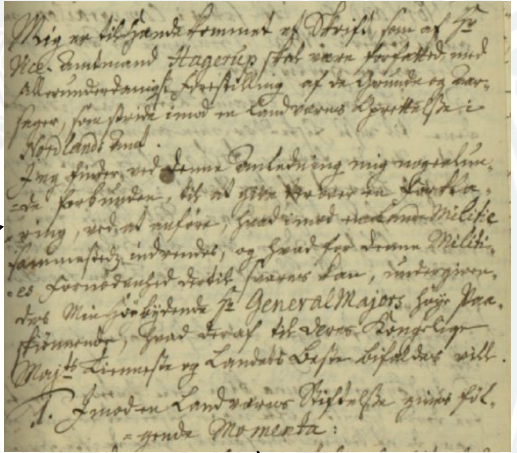 Mig er tilhænde kommet et Skrift, som af Hr
Vice-Amtmand Hagerup skal være forfatted, med
Allerunderdanigst Forestilling af de Grunde og Aar-
sager, som stride imod en Landværns Oprettelse i
Nordlands Amt.
Jeg finder ved denne Anledning mig
forbunden, til at give
ring, ved at anføre, hvad imod Land Militie
sammestedz indvendes, og hvad for denne Militi-
es Fornødenhed dertil svares kan, undergiven-
des Min Høybydende Hr General Majors høye Paa-
skiønnende, hvad deraf til Deres Kongelige
Majts Tienneste og Landets Beste bifaldes vill.
1. Imod en Landværns Stiftelse giøres føl-
gende Momenta: